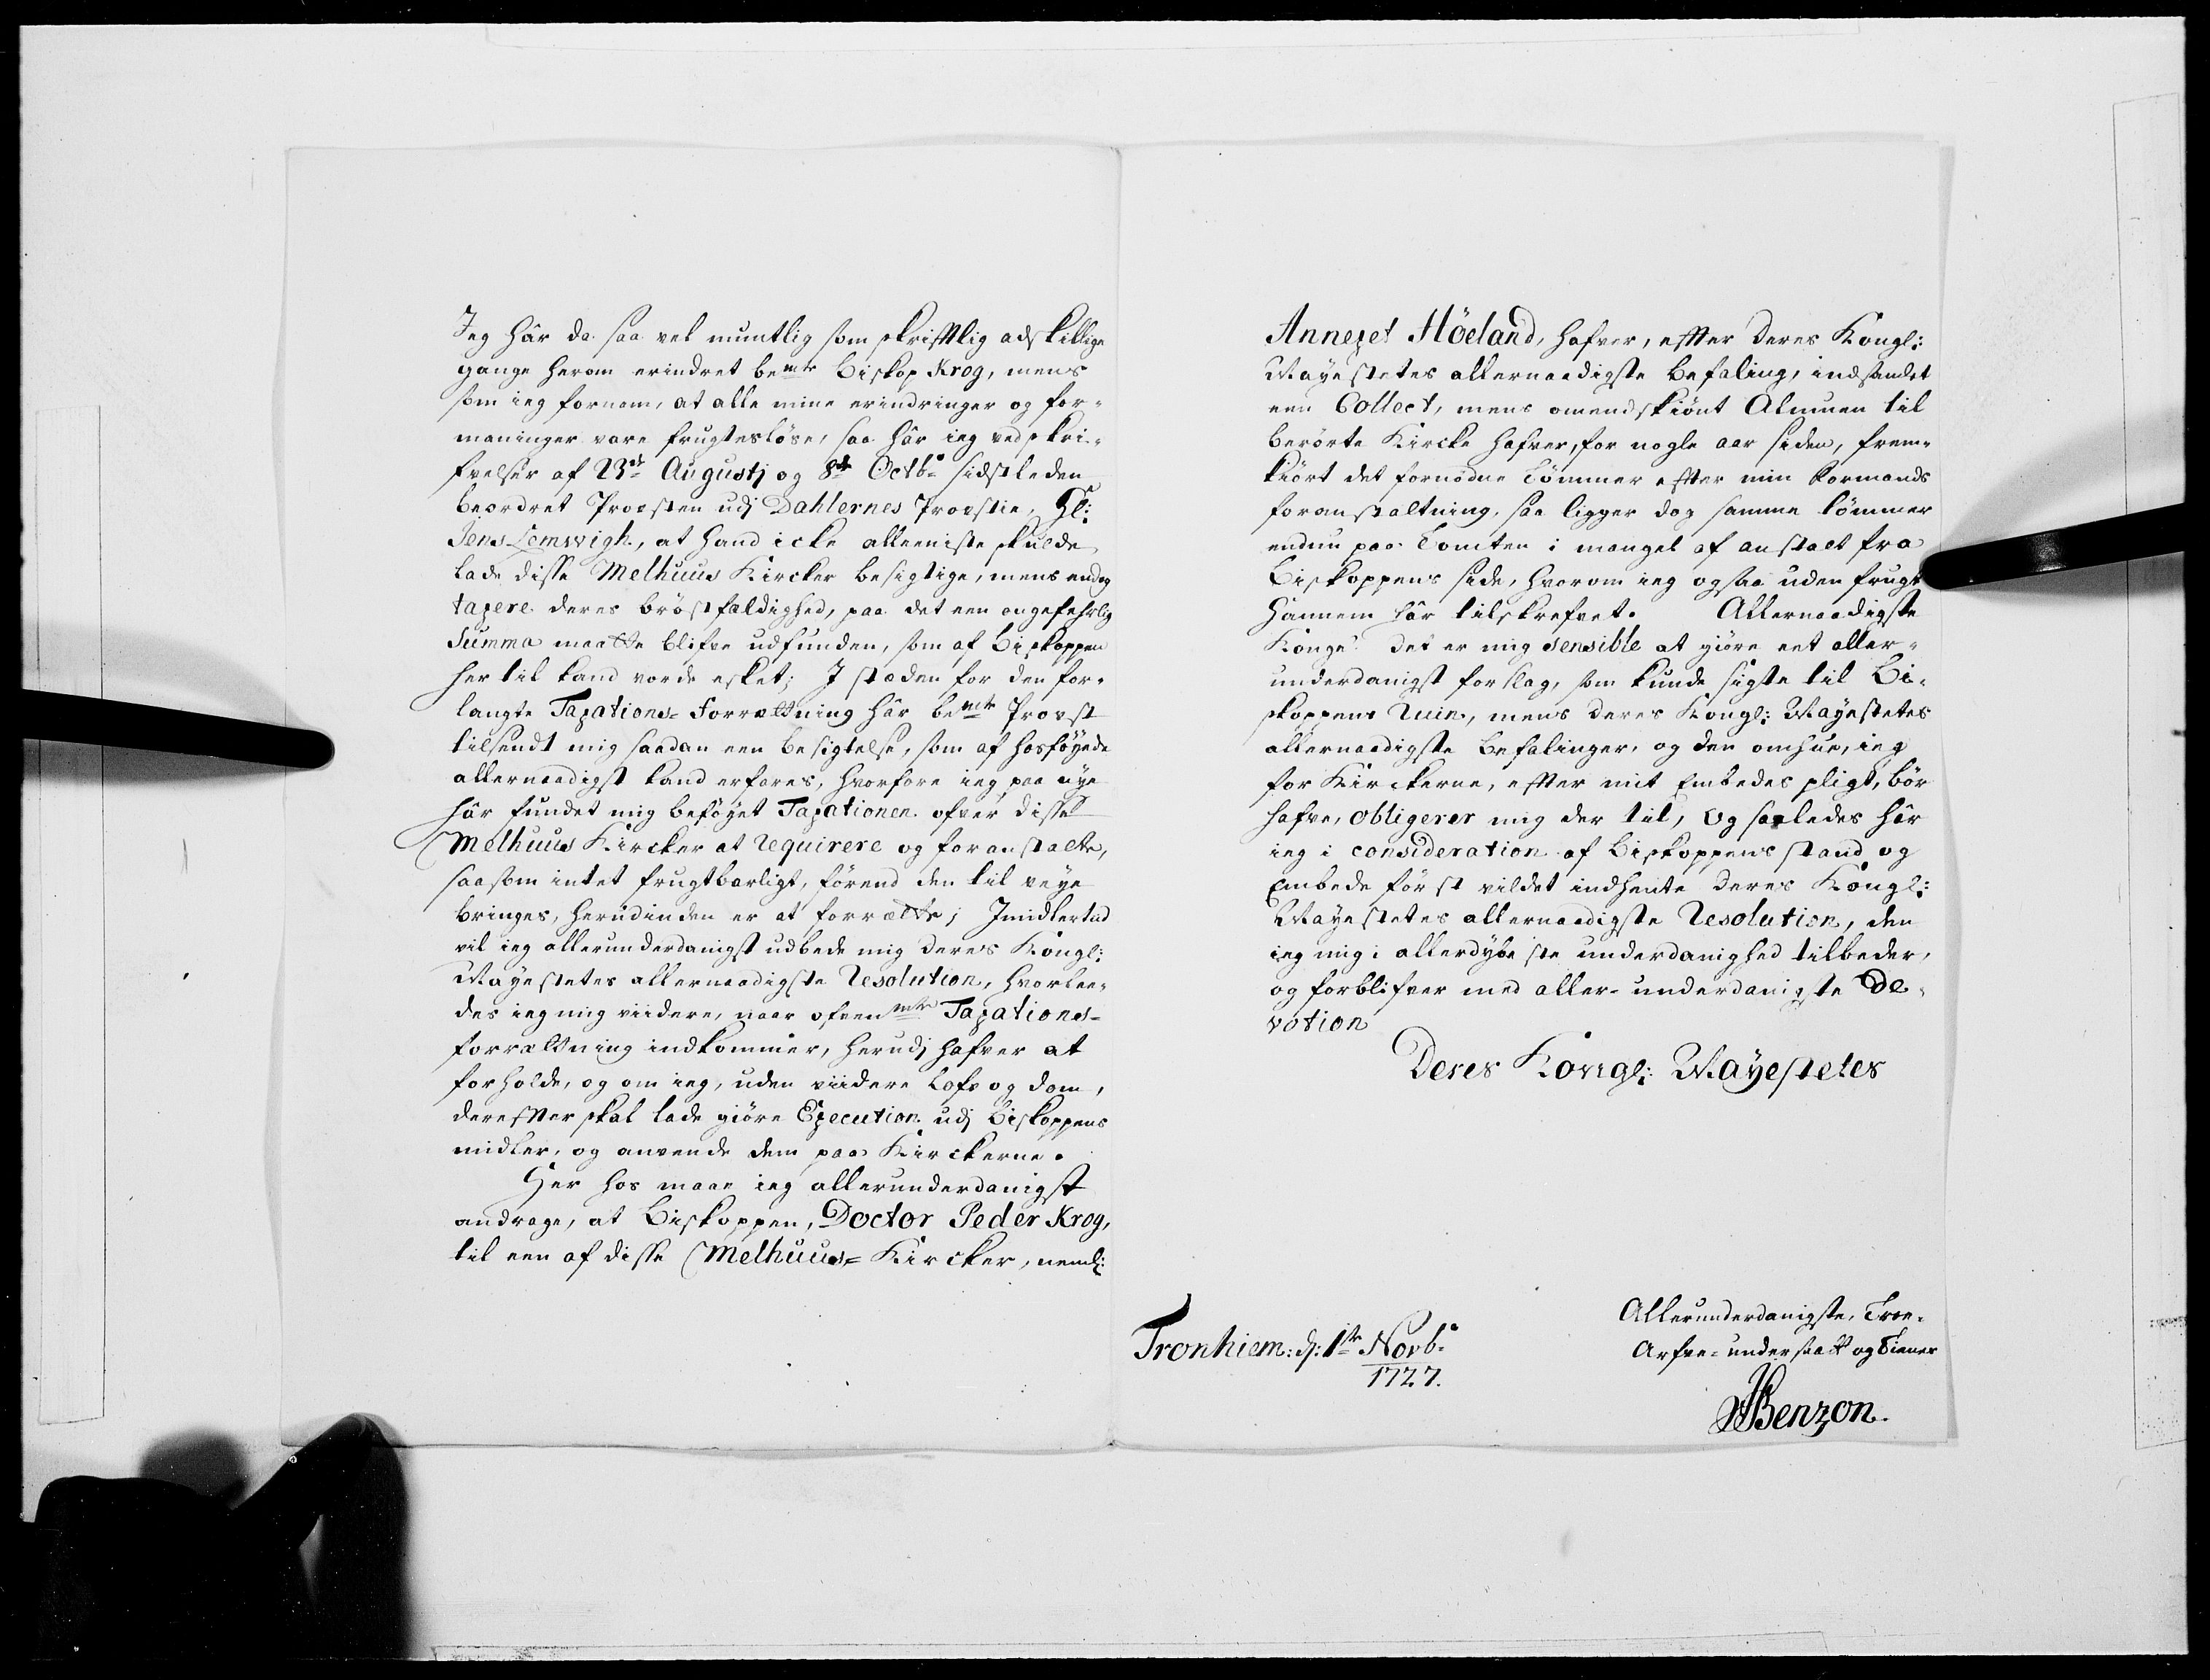 Jeg hâr da saa vel muntlig som skrifftlig adskillige
gange herom erindret bemte Biskop Krog, mens
som ieg fornam, at alle mine erindringer og for-
maninger vare frugtesløse, saa hâr ieg ved skri-
fvelser af 23de Augustj og 8de Octb: sidstleden
beordret Provsten udj Dahlernes Provstie, Hl:
Jens Lemwigh, at hand icke alleeniste skulde
lade disse Melhuus Kircker besigtige, mens endog
taxere deres bröstfældighed, paa det een ongefehrlig
Summa maatte blifve udfunden, som af Biskoppen
her til kand vorde esket; I stæden for den for-
langte Taxations-Forrætning hâr bemte Provst
tilsendt mig saadan een besigtelse, som af hosföyede
allernaadigst kand erfares, hvorfore ieg paa nye
hâr fundet mig beföyet Taxationen ofver disse
Melhuus Kircker at requirere og foranstalte,
saasom intet frugtbarligt, förend den til veye
bringes, herudinden er at forrætte; Imidlertid
vil ieg allerunderdanigst udbede mig Deres Kongl:
Mayestetes allernaadigste Resolution, hvorlee-
des ieg mig viidere, naar ofvenmte Taxations-
forrætning indkommer, herudj hafver at
forholde, og om ieg, uden viidere Lofv og dom,
derefter skal lade giöre Execution udj Biskoppens
midler, og anvende dem paa Kirckerne.
Her hos maae ieg allerunderdanigst
andrage, at Biskoppen, Doctor Peder Krog,
til een af disse Melhuus-Kircker, nemlj:
Annexet Höeland, hafver, effter Deres Kongl:
Mayestetes allernaadigste Befaling, indsandet
een Collect, mens omendskiönt Almuen til
berörte Kircke hafver, for nogle aar siden, frem-
kiört det fornödne Tömmer effter min Formands
foranstaltning, saa ligger dog samme tömmer
endnu paa Tomten i mangel af anstalt fra
Biskoppens side, hvorom ieg ogsaa uden frugt
hannem hâr tilskrefvet. Allernaadigste
Konge! det er mig sensible at giöre eet aller-
underdanigst forslag, som kunde sigte til Bi-
skoppens Ruin, mens Deres Kongl: Mayestetes
allernaadigste Befalinger, og den omhue, ieg
for Kirckerne, effter mit Embedes pligt, bör
hafve, obligerer mig der til, og saaledes hâr
ieg i consideration af Biskoppens stand og
Embede först vildet indhente Deres Kongl:
Mayestetes allernaadigste Resolution, den
ieg mig i allerdybeste underdanighed tilbeder,
og forblifver med aller-underdanigste De-
votion
Deres Kongl: Mayestetes
Tronhiem: d: 1te Novb:
1727.
Allerunderdanigste, Troe-
Arfve-undersaatt og Tiener
Benzon.